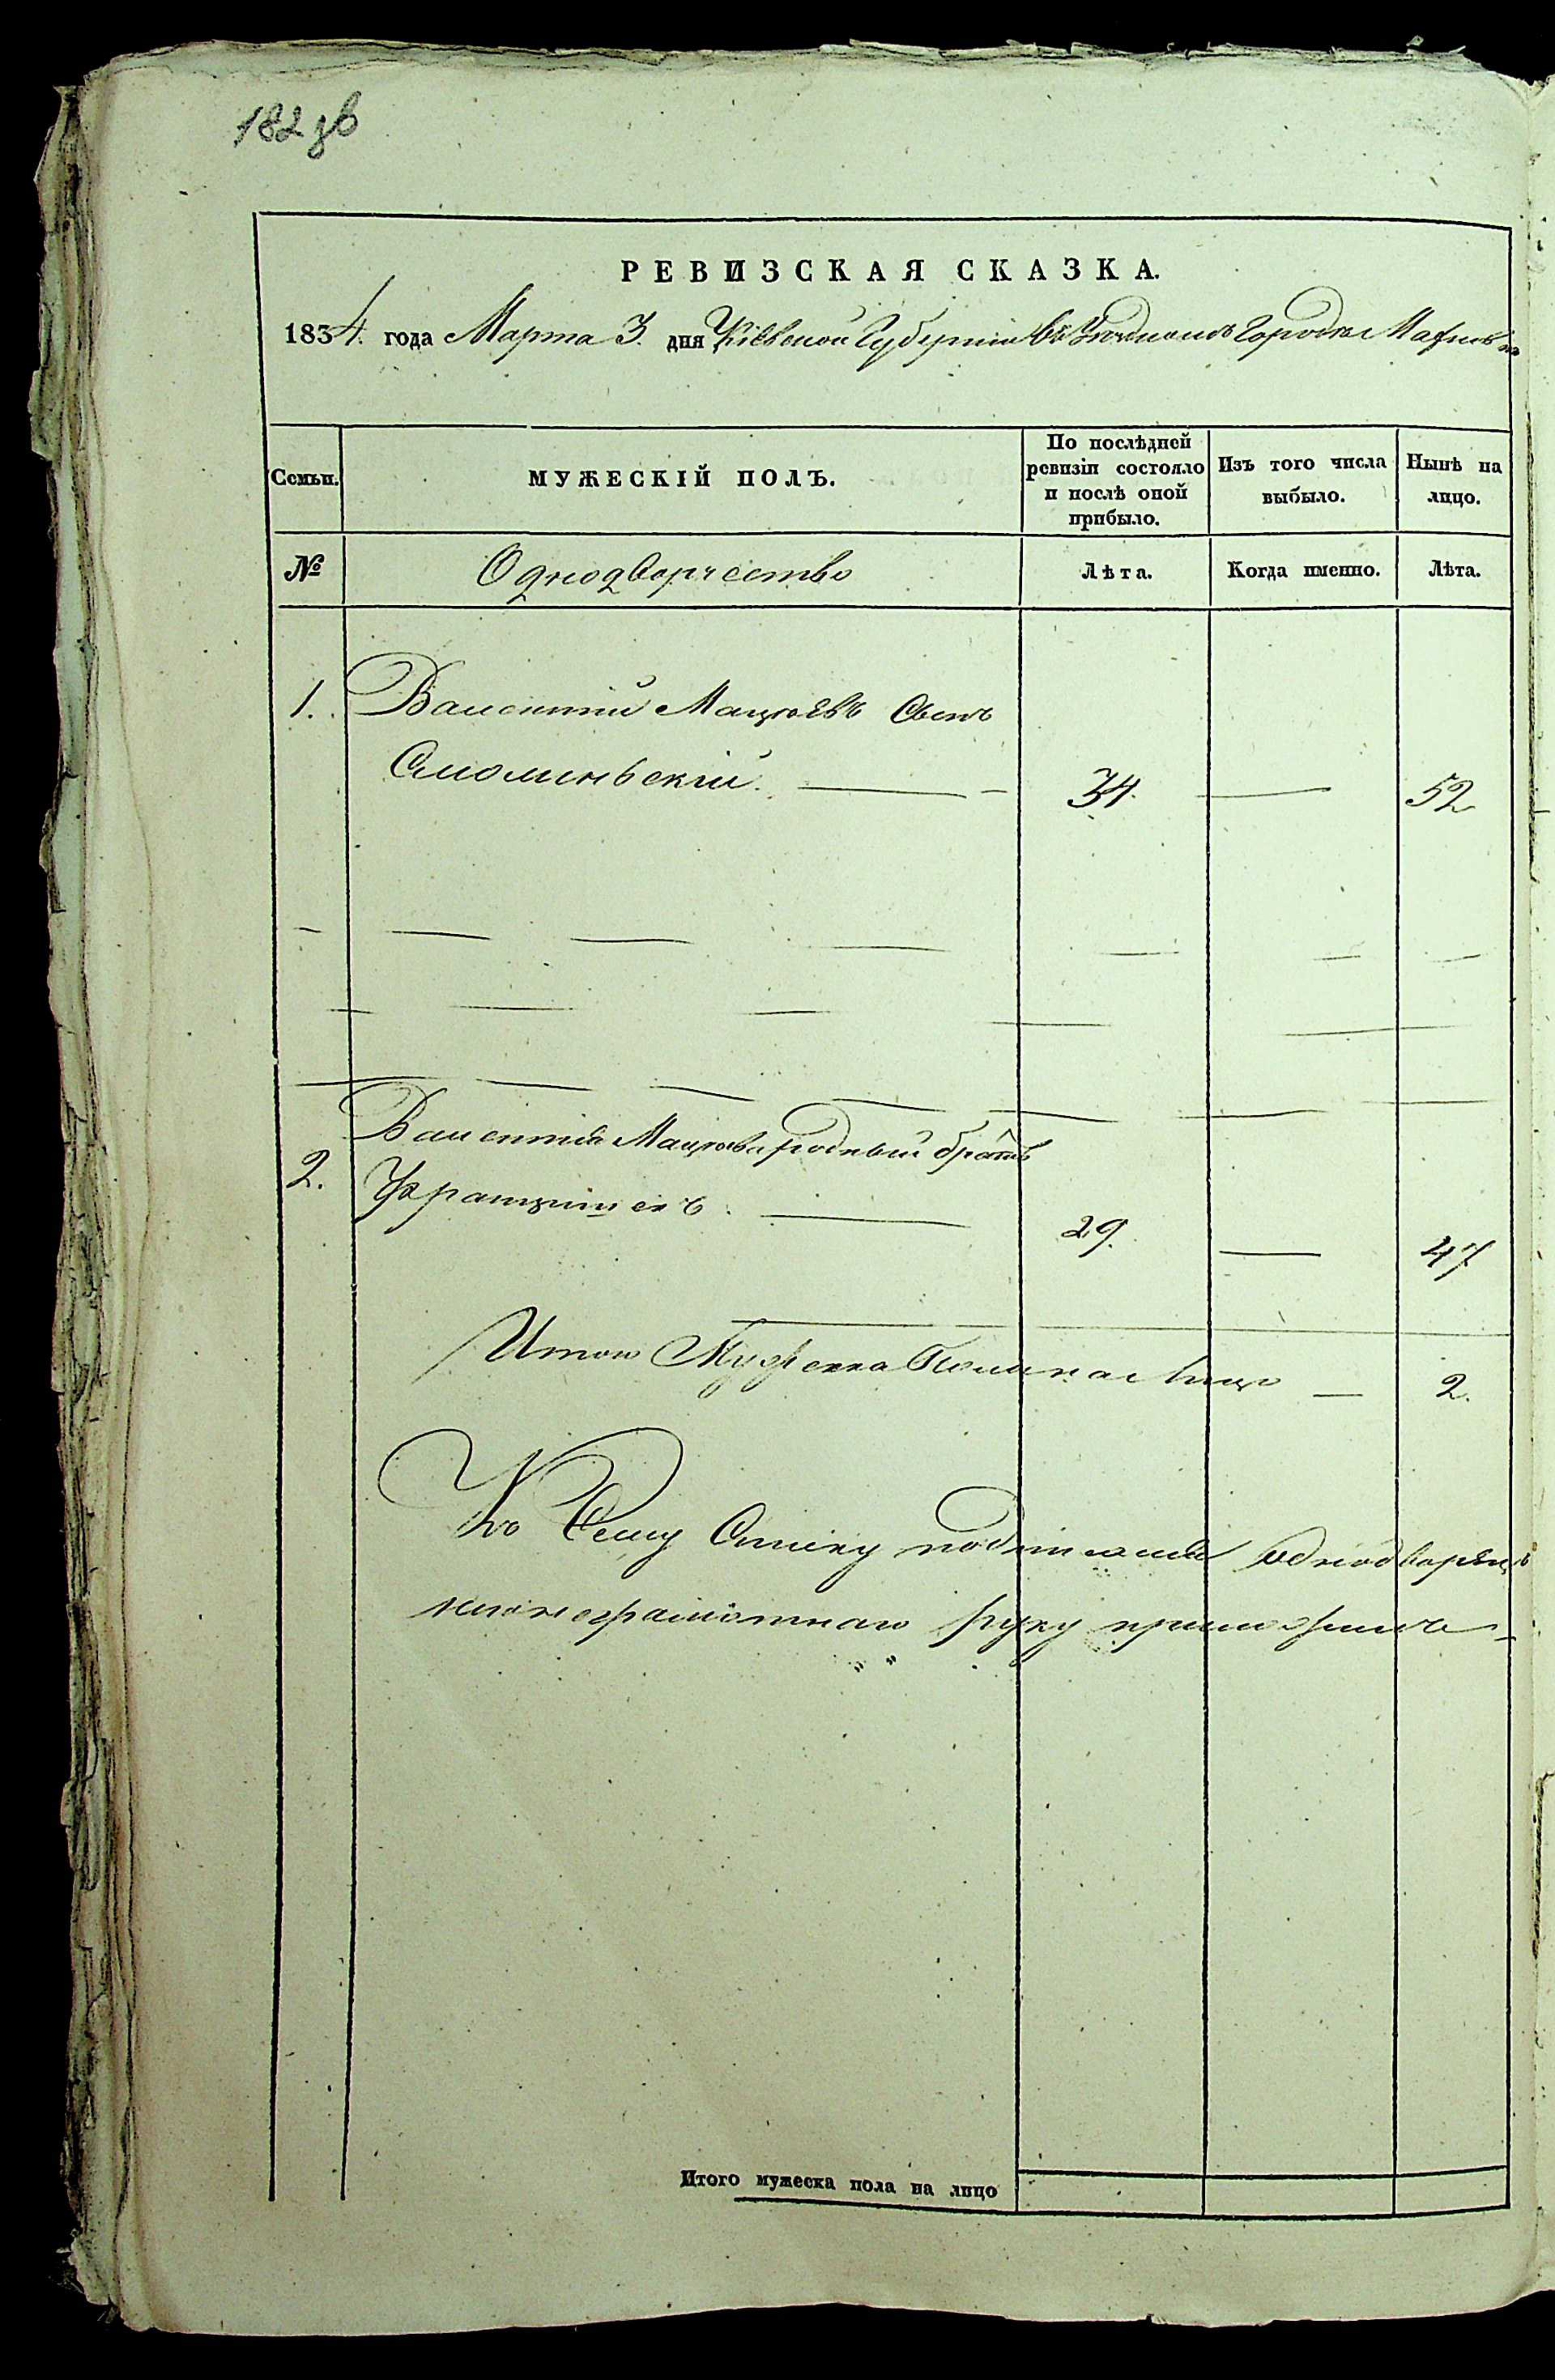 182 зв
РЕВИЗСКАЯ СКАЗКА.
1834. года Марта 3. дня Кіевской Губерніи въ Городке Махнов
Семьи.
МУЖЕСКІЙ ПОЛЪ.
По послѣдней
ревизіи состояло
и послѣ оной
прибыло.
Изъ того числа
выбыло.
Нынѣ на
лицо.
№
Однодворчество
Лѣта.
Когда именно.
Лѣта.
1. Валентій Мацѣевъ Сынъ
Смолиньскій. 34. 52
Валентія Мацѣева родный братъ
2. Францишекъ. 29. 47
Итого Мужеска Пола на Лицо 2.
Къ Сему Списку однодворецъ
неграмотнаго руку приложилъ
Итого мужеска пола на лицо